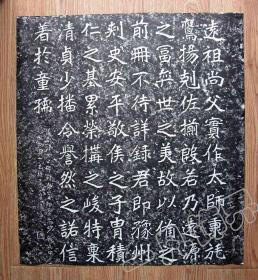 遠祖尚父實作太師秉旄
鷹揚剋佐揃殷若乃遠源
之富弈世之美故以備之
前冊不待詳錄君即孫州
刾史安平敬侯之子胄積
仁之基累榮搆之峻特稟
清貞少播令譽然之諾信
著於童孺